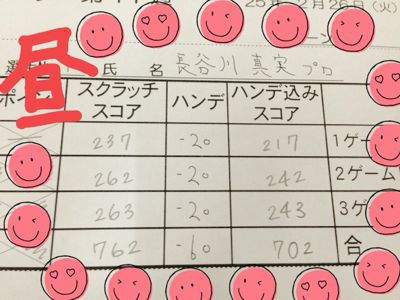 25年2月26日(火)
昼
氏 名 長谷川 真実 プロ
スクラッチ スコア ハンデ ハンデ込み スコア
237 -20 217 1ゲー
262 -20 242 2ゲーム
263 -20 243 3ゲ
762 -60 702 合